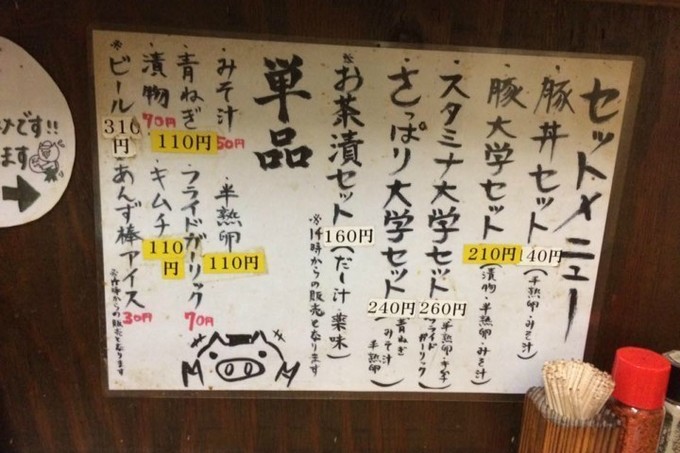 セットメニュー
・豚丼セット140円(半熟卵・みそ汁)
・豚大学セット210円(漬物・半熟卵・みそ汁)
・スタミナ大学セット260円
半熟卵・キムチ
フライドガーリック
・さっぱり大学セット240円
青ねぎ
みそ汁
半熟卵
※お茶漬セット160円(だし汁・薬味)
※14時からの販売となります
単品
・みそ汁50円
・半熟卵110円
・青ねぎ110円
・フライドガーリック70円
・漬物70円
・キムチ110円
※ビール310円
※あんず棒アイス30円
からの販売となります
です!!
ます